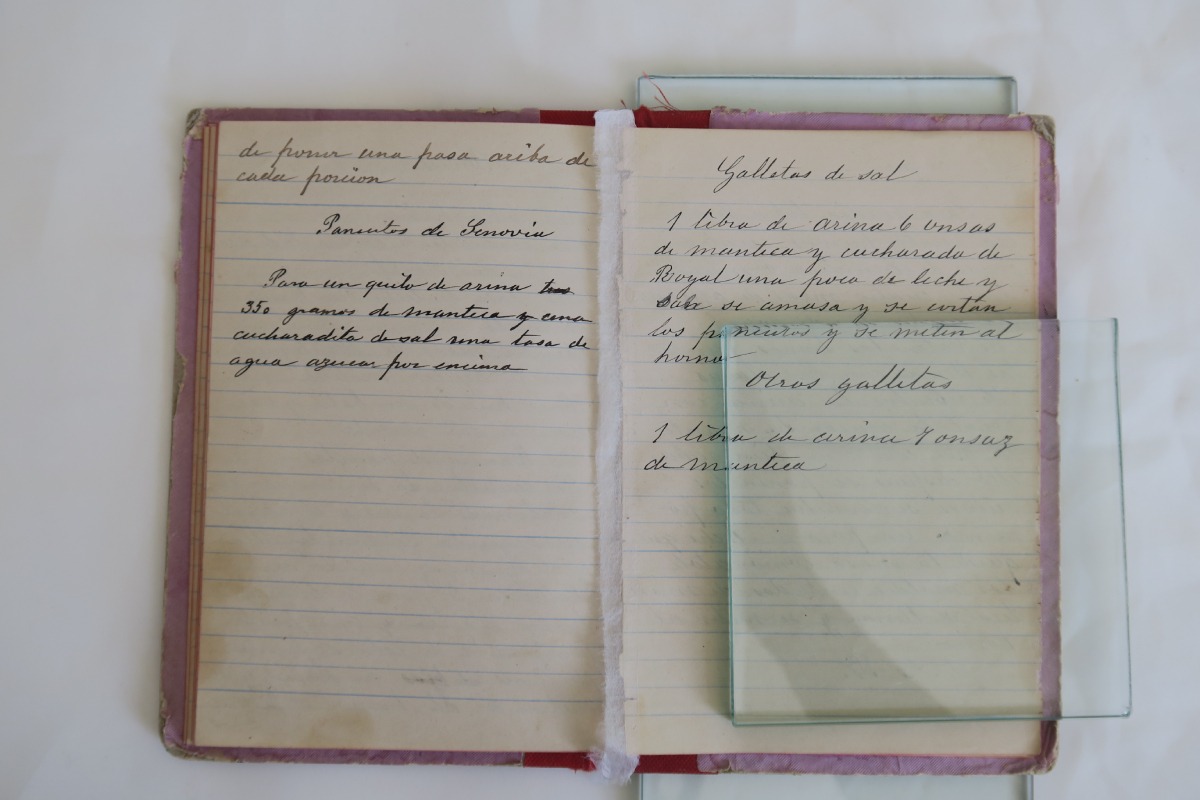 de poner una pasa ariba de
cada porcion
Panecitos de Senovia
Para un quilo de arina tres
350 gramos de manteca y una
cucharadita de sal una tasa de
agua azucar por encima
Galletas de sal
1 libra de arina 6 onsas
de manteca y cucharada de
Royal una poca de leche y
se amasa y se cortan
los y se meten al
horno
Otras galletas
1 libra de arina 7 onsaz
de manteca